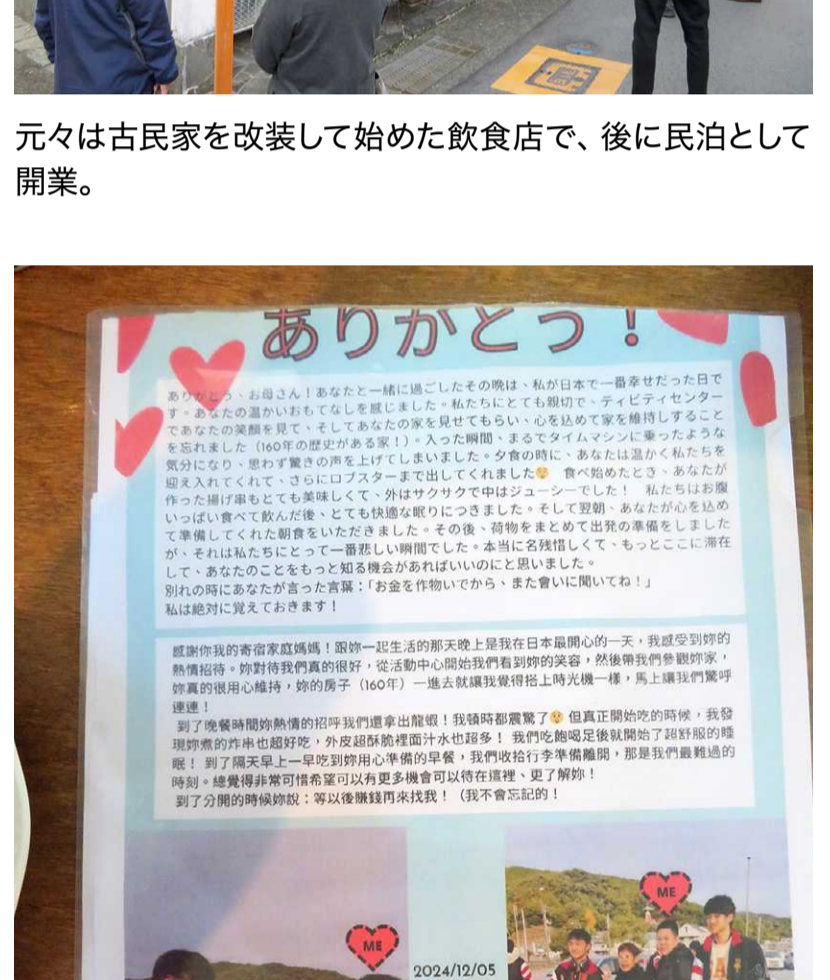 元々は古民家を改装して始めた飲食店で、後に民泊として
開業。
ありがとう！
ありがとう、お母さん！あなたと一緒に過ごしたその晩は、私が日本で一番幸せだった日で
す。あなたの温かいおもてなしを感じました。私たちにとても親切で、ティビティセンター
であなたの笑顔を見て、そしてあなたの家を見せてもらい、心を込めて家を維持しすること
を忘れました（160年の歴史がある家！）。入った瞬間、まるでタイムマシンに乗ったような
気分になり、思わず驚きの声を上げてしまいました。夕食の時に、あなたは温かく私たちを
迎え入れてくれて、さらにロブスターまで出してくれました😲 食べ始めたとき、あなたが
作った揚げ串もとても美味しくて、外はサクサクで中はジューシーでした！ 私たちはお腹
いっぱい食べて飲んだ後、とても快適な眠りにつきました。そして翌朝、あなたが心を込め
て準備してくれた朝食をいただきました。その後、荷物をまとめて出発の準備をしました
が、それは私たちにとって一番悲しい瞬間でした。本当に名残惜しくて、もっとここに滞在
して、あなたのことをもっと知る機会があればいいのにと思いました。
別れの時にあなたが言った言葉：「お金を作物いでから、また會いに聞いてね！」
私は絶対に覚えておきます！
感謝你我的寄宿家庭媽媽！跟妳一起生活的那天晚上是我在日本最開心的一天，我感受到妳的
熱情招待。妳對待我們真的很好，從活動中心開始我們看到妳的笑容，然後帶我們參觀妳家，
妳真的很用心維持，妳的房子（160年）一進去就讓我覺得搭上時光機一樣，馬上讓我們驚呼
連連！
到了晚餐時間妳熱情的招呼我們還拿出龍蝦！我頓時都震驚了😲 但真正開始吃的時候，我發
現妳煮的炸串也超好吃，外皮超酥脆裡面汁水也超多！ 我們吃飽喝足後就開始了超舒服的睡
眠！ 到了隔天早上一早吃到妳用心準備的早餐，我們收拾行李準備離開，那是我們最難過的
時刻。總覺得非常可惜希望可以有更多機會可以待在這裡、更了解妳！
到了分開的時候妳說：等以後賺錢再來找我！（我不會忘記的！
ME
ME
2024/12/05